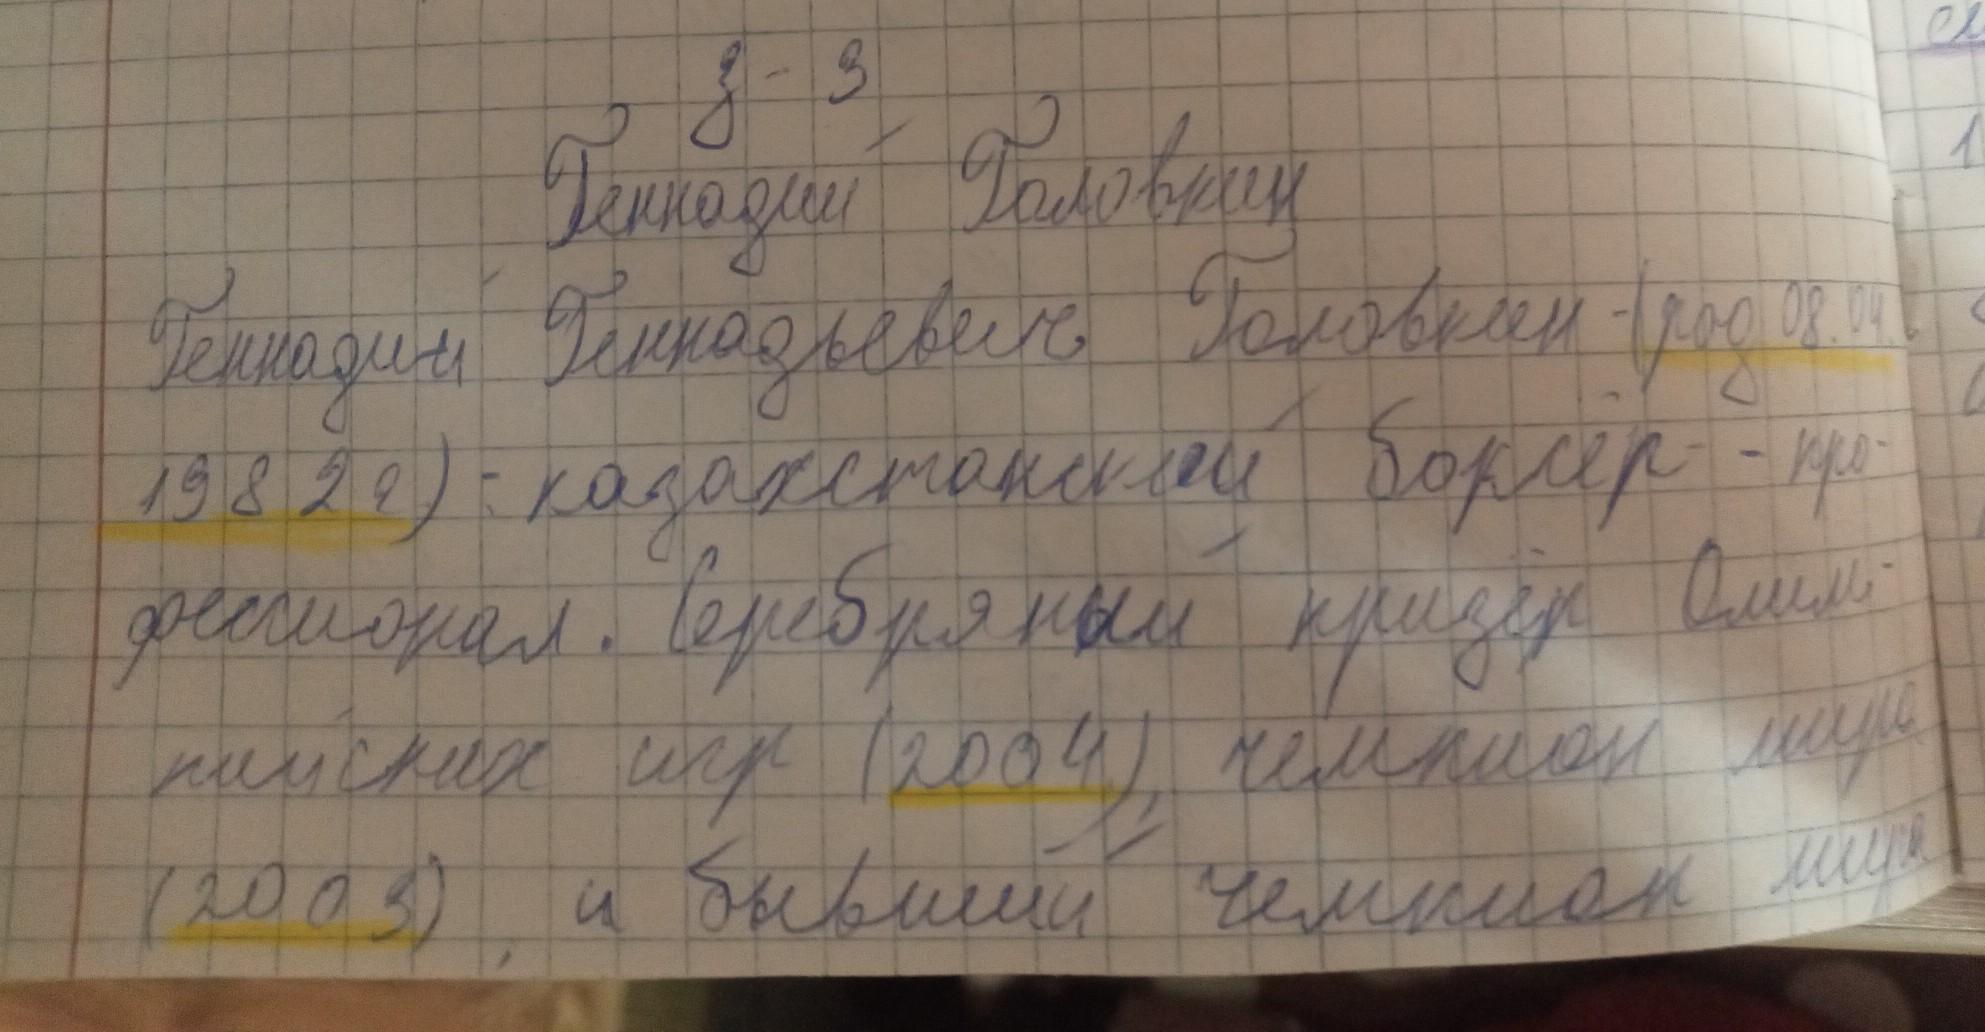 з - 3
Геннадий Головкин
Геннадий Геннадьевич Головкин - (род 08.04.
1982г) - казахстанский боксёр - про-
фессионал. Серебряный призёр Олим-
пийских игр (2004), чемпион мира
(2003), и бывший чемпион мира
1